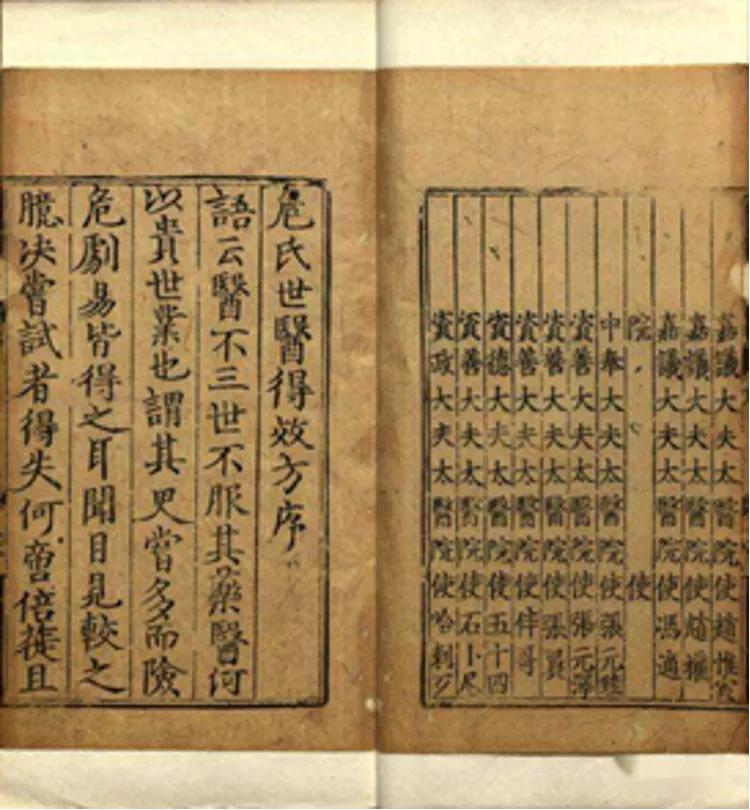 嘉議大夫太醫院使趙惟
嘉議大夫太醫院使趙權
嘉議大夫太醫院使馮適
院使
中奉大夫太醫院使張元
資善大夫太醫院使張元澤
資善大夫太醫院使張翼
資善大夫太醫院使伴哥
資德大夫太醫院使五十四
資善大夫太醫院使石卜尼
資政大夫太醫院使哈剌歹
危氏世醫得效方序
語云醫不三世不服其藥醫何
以貴世業也謂其更嘗多而險
危劇易皆得之耳聞目見較之
臆決嘗試者得失何啻倍蓰且